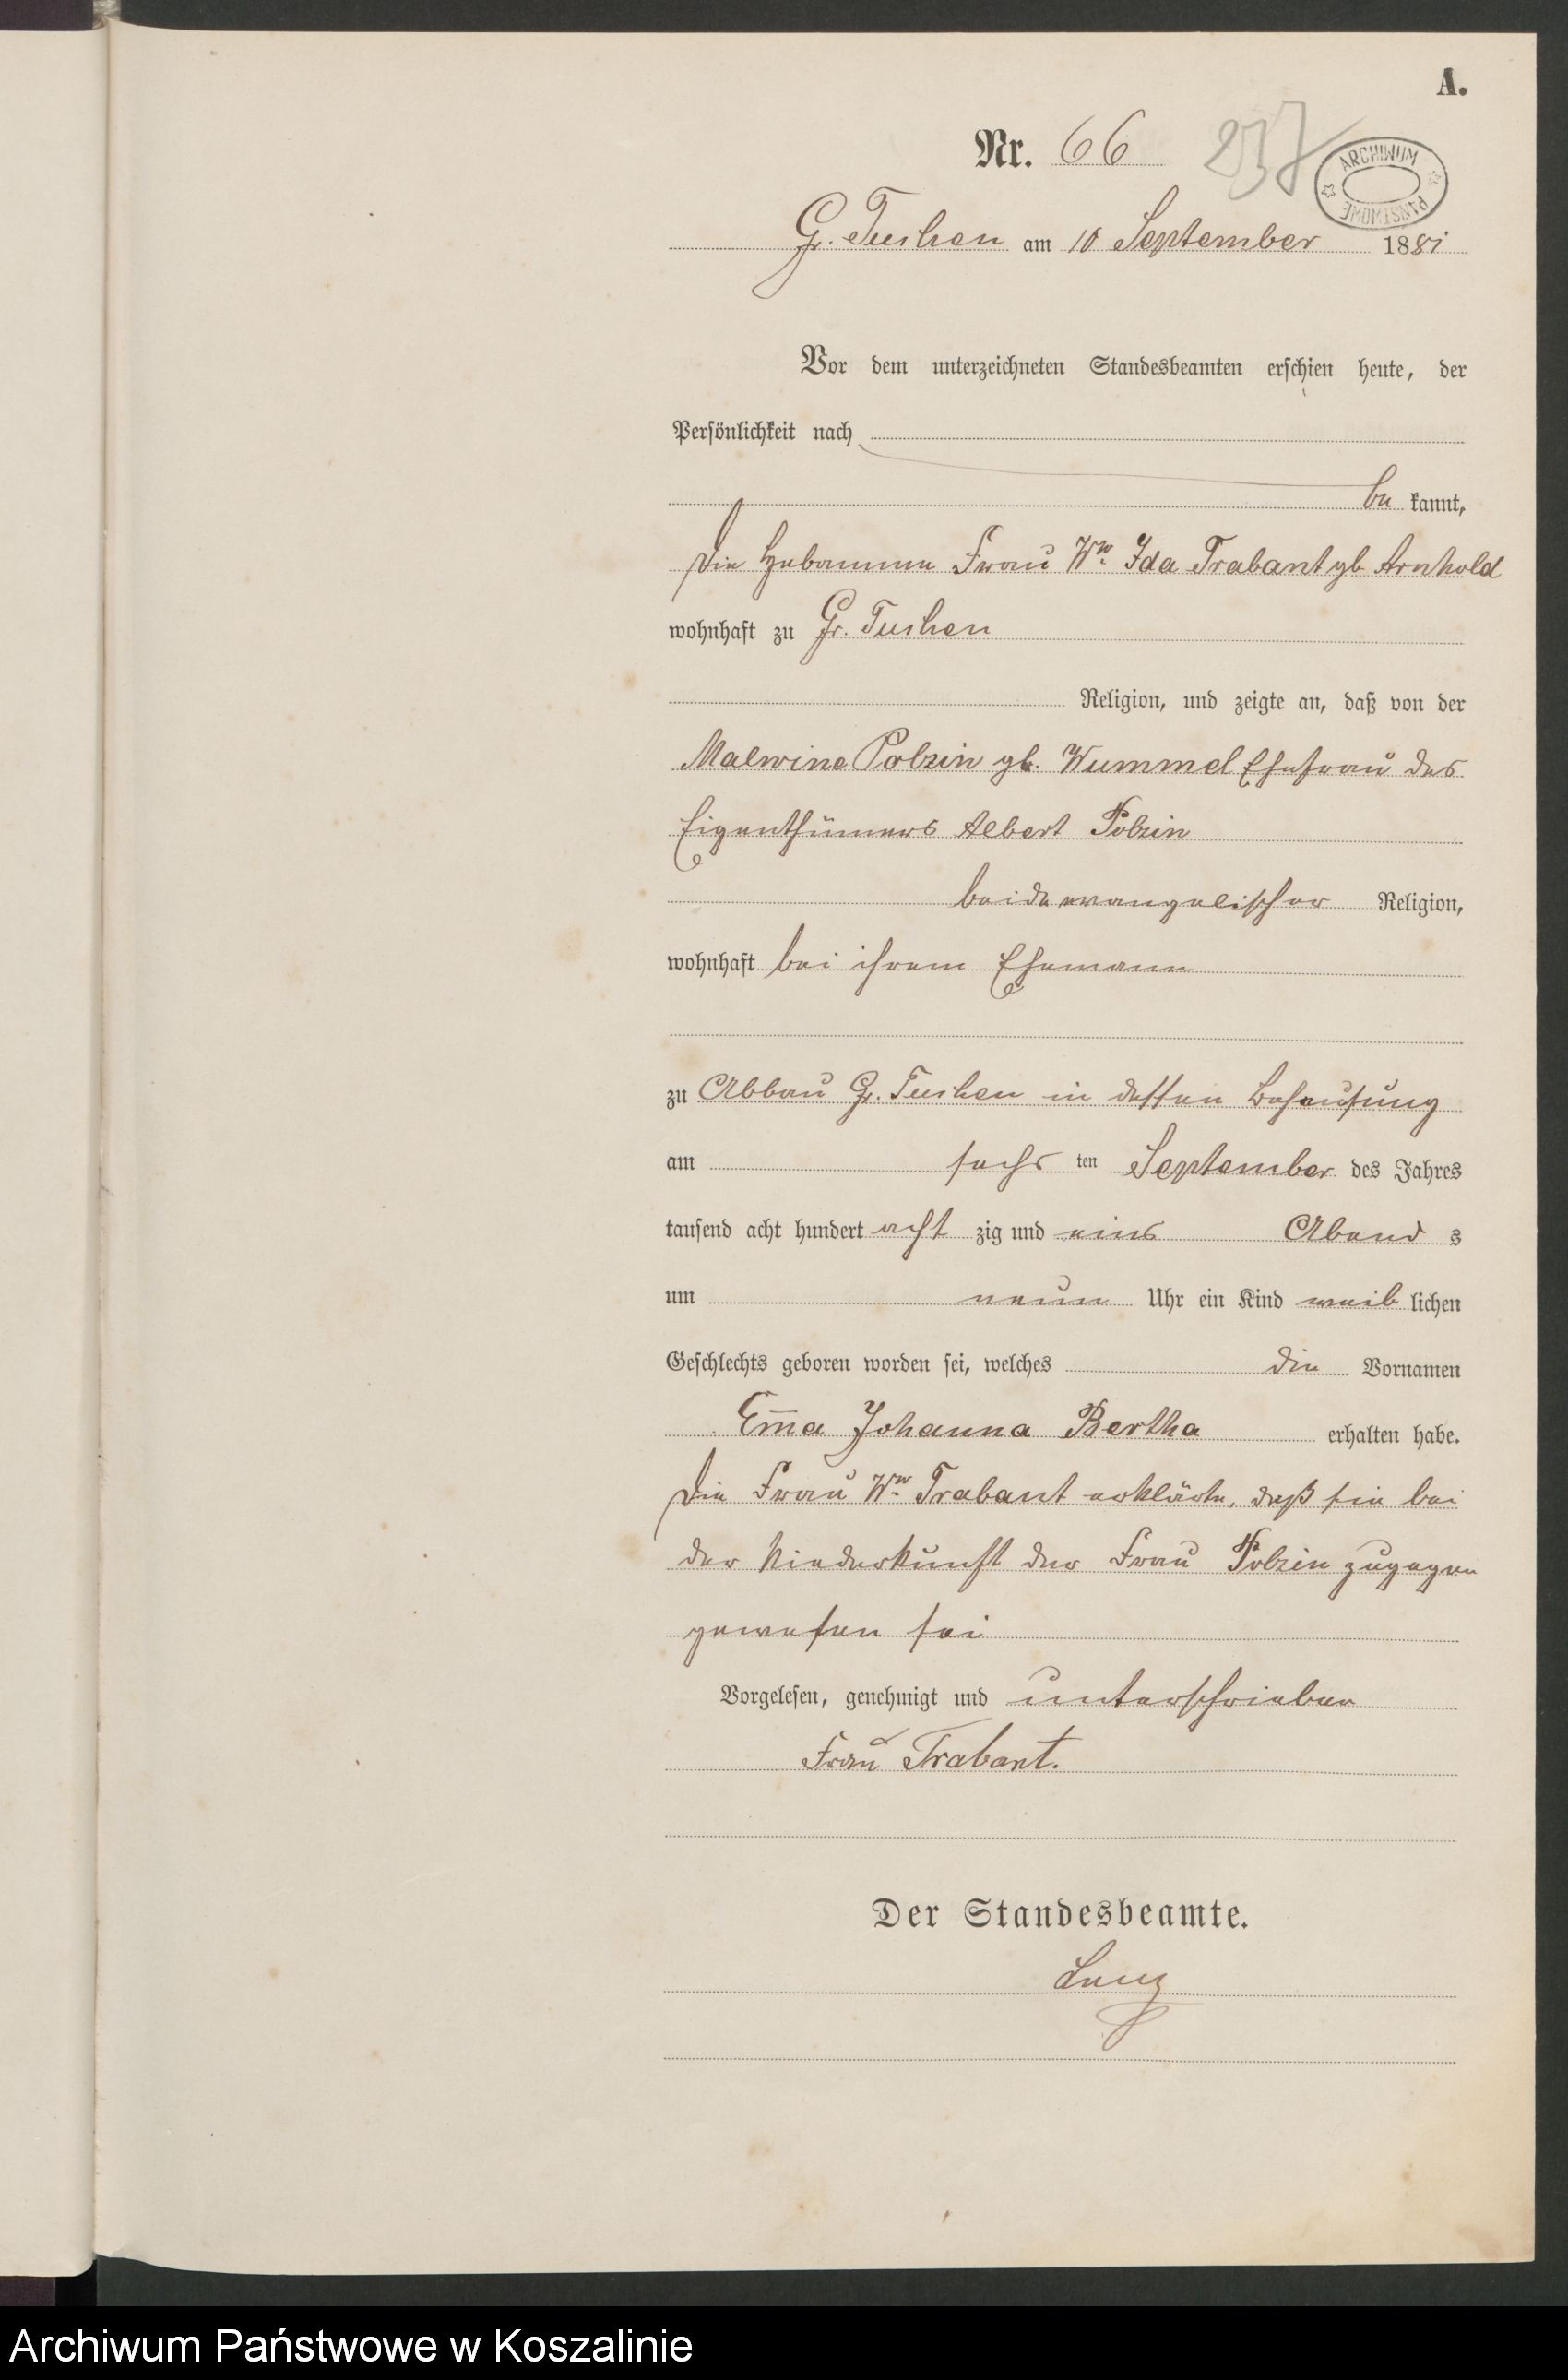 A.
Nr. 66 237
ARCHIWUM PAŃSTWOWE
Gr. Tuchen am 10 September 1881
Vor dem unterzeichneten Standesbeamten erschien heute, der
Persönlichkeit nach
be kannt,
die Hebamme Frau Ww. Ida Trabant gb. Arnhold
wohnhaft zu Gr. Tuchen
Religion, und zeigte an, daß von der
Malwine Polzin gb. Wummel Ehefrau des
Eigenthümers Albert Polzin
beide evangelischer Religion,
wohnhaft bei ihrem Ehemann
zu Abbau Gr. Tuchen in dessen Behausung
am sechs ten September des Jahres
tausend acht hundert acht zig und eins Abend s
um neun Uhr ein Kind weib lichen
Geschlechts geboren worden sei, welches die Vornamen
Em̅a Johanna Bertha erhalten habe.
Die Frau Ww. Trabant erklärte, daß sie bei
der Niederkunft der Frau Polzin zugegen
gewesen sei
Vorgelesen, genehmigt und unterschrieben
Frau Trabant.
Der Standesbeamte.
Lenz
Archiwum Państwowe w Koszalinie